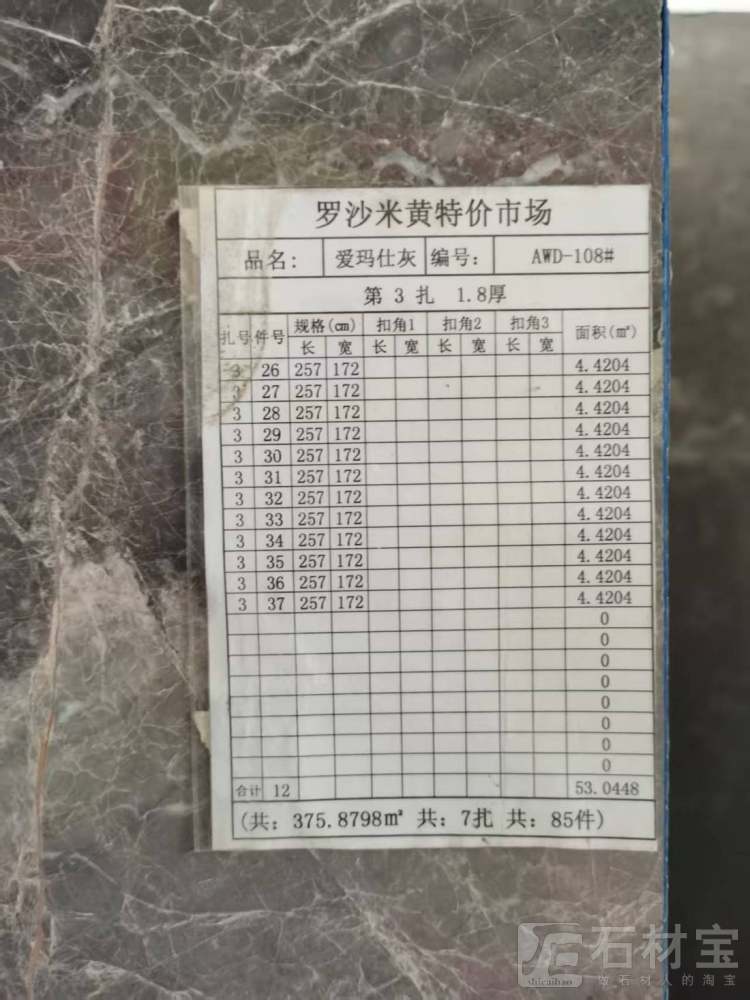 罗沙米黄特价市场
品名: 爱玛仕灰 编号: AWD-108#
第 3 扎 1.8厚
扎号 件号 规格(cm) 扣角1 扣角2 扣角3 面积(㎡)
长 宽 长 宽 长 宽 长 宽
3 26 257 172 4.4204
3 27 257 172 4.4204
3 28 257 172 4.4204
3 29 257 172 4.4204
3 30 257 172 4.4204
3 31 257 172 4.4204
3 32 257 172 4.4204
3 33 257 172 4.4204
3 34 257 172 4.4204
3 35 257 172 4.4204
3 36 257 172 4.4204
3 37 257 172 4.4204
0
0
0
0
0
0
0
0
合计 12 53.0448
(共: 375.8798㎡ 共: 7扎 共: 85件)
石材宝
shicaibao 做石材人的淘宝